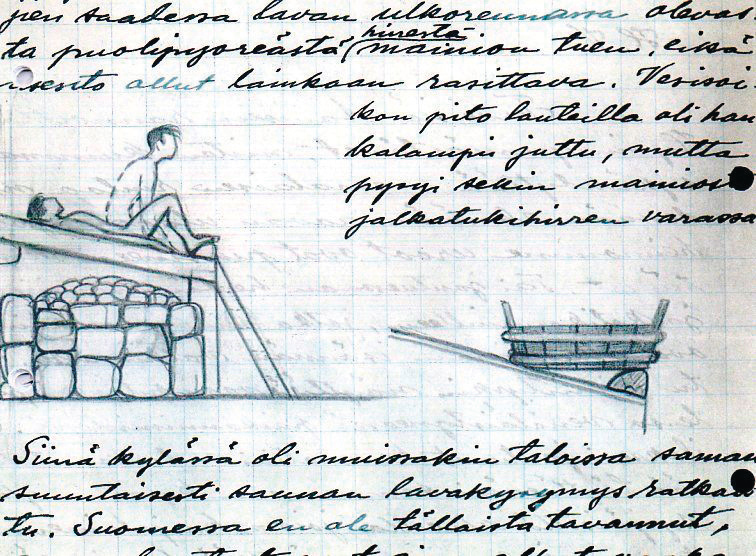 jen saadessa lavan ulkoreunassa olevas
ta puolipyöreästä hirrestä mainion tuen, eikä
allut lainkaan rasittava. Vesisoi-
kon pito lauteilla oli han
kalampi juttu, mutta
pysyi sekin mainiosti
jalkatukihirren varassa
Siinä kylässä oli muissakin taloissa saman
suuntaisesti saunan lavakysymys ratkais
tu. Suomessa en ole tällaista tavannut,